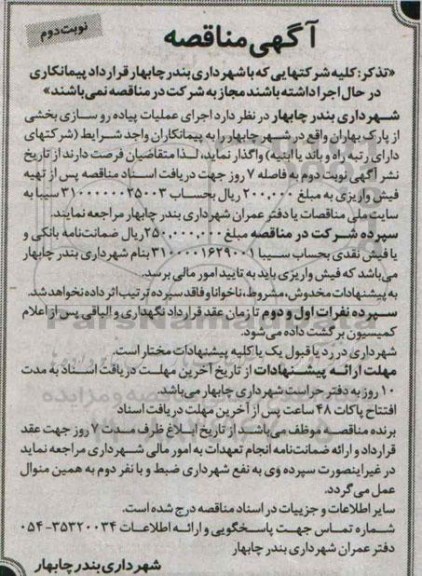 آگهی مناقصه
نوبت دوم
«تذکر: کلیه شرکتهایی که با شهرداری بندر چابهار قرارداد پیمانکاری
در حال اجرا داشته باشند مجاز به شرکت در مناقصه نمی‌باشند»
شهرداری بندر چابهار در نظر دارد اجرای عملیات پیاده رو سازی بخشی
از پارک بهاران واقع در شهر چابهار را به پیمانکاران واجد شرایط (شرکتهای
دارای رتبه راه و باند یا ابنیه) واگذار نماید، لذا متقاضیان فرصت دارند از تاریخ
نشر آگهی نوبت دوم به فاصله ۷ روز جهت دریافت اسناد مناقصه پس از تهیه
فیش واریزی به مبلغ ۲۰۰,۰۰۰ ریال بحساب ۳۱۰۰۰۰۰۰۳۵۰۰۳ سیبا به
سایت ملی مناقصات یا دفتر عمران شهرداری بندر چابهار مراجعه نمایند.
سپرده شرکت در مناقصه مبلغ ۲۵۰,۰۰۰,۰۰۰ ریال ضمانت‌نامه بانکی و
یا فیش نقدی بحساب سیبا ۳۱۰۰۰۰۱۶۲۹۰۰۱ بنام شهرداری بندر چابهار
می‌باشد که فیش واریزی باید به تایید امور مالی برسد.
به پیشنهادات مخدوش، مشروط، ناخوانا و فاقد سپرده ترتیب اثر داده نخواهد شد.
سپرده نفرات اول و دوم تا زمان عقد قرارداد نگهداری و الباقی پس از اعلام
کمیسیون برگشت داده می‌شود.
شهرداری در رد یا قبول یک یا کلیه پیشنهادات مختار است.
مهلت ارائه پیشنهادات از تاریخ آخرین مهلت دریافت اسناد به مدت
۱۰ روز به دفتر حراست شهرداری چابهار می‌باشد.
افتتاح پاکات ۴۸ ساعت پس از آخرین مهلت دریافت اسناد
برنده مناقصه موظف می‌باشد از تاریخ ابلاغ ظرف مدت ۷ روز جهت عقد
قرارداد و ارائه ضمانت‌نامه انجام تعهدات به امور مالی شهرداری مراجعه نماید
در غیر اینصورت سپرده وی به نفع شهرداری ضبط و با نفر دوم به همین منوال
عمل می‌گردد.
سایر اطلاعات و جزییات در اسناد مناقصه درج شده است.
شماره تماس جهت پاسخگویی و ارائه اطلاعات ۳۵۳۲۰۰۳۴-۰۵۴
دفتر عمران شهرداری بندر چابهار
شهرداری بندر چابهار